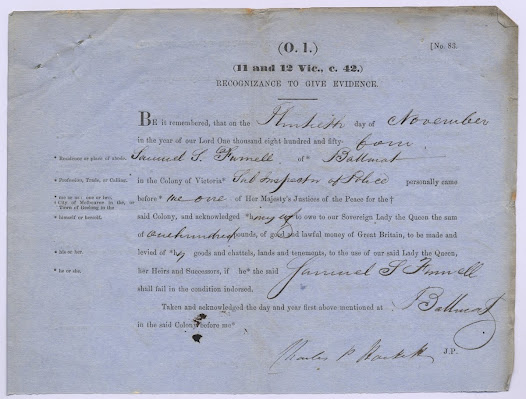 (O. 1.)
[No. 83.
(11 and 12 Vic., c. 42.)
RECOGNIZANCE TO GIVE EVIDENCE.
BE is remembered, that on the Thirtieth day of November
in the year of our Lord One thousand eight hundred and fifty-four
* Residence or place of abode. Samuel S. Furnell of* Ballaarat
* Profession, Trade, or Calling. in the Colony of Victoria* Sub Inspector of Police personally came
* one or two. before* me one of Her Majesty's Justices of the Peace for the†
† City of Melbourne in the, or Town of Geelong in the
* himself or herself. said Colony, and acknowledged * to owe to our Sovereign Lady the Queen the sum
of one hundred pounds, of good and lawful money of Great Britain, to be made and
* his or her. levied of * goods and chattels, lands and tenements, to the use of our said Lady the Queen,
* he or she. her Heirs and Successors, if he* the said Samuel S Furnell
shall fail in the condition indorsed.
Taken and acknowledged the day and year first above mentioned at Ballaarat
in the said Colony before me*
Charles P Hackett J.P.